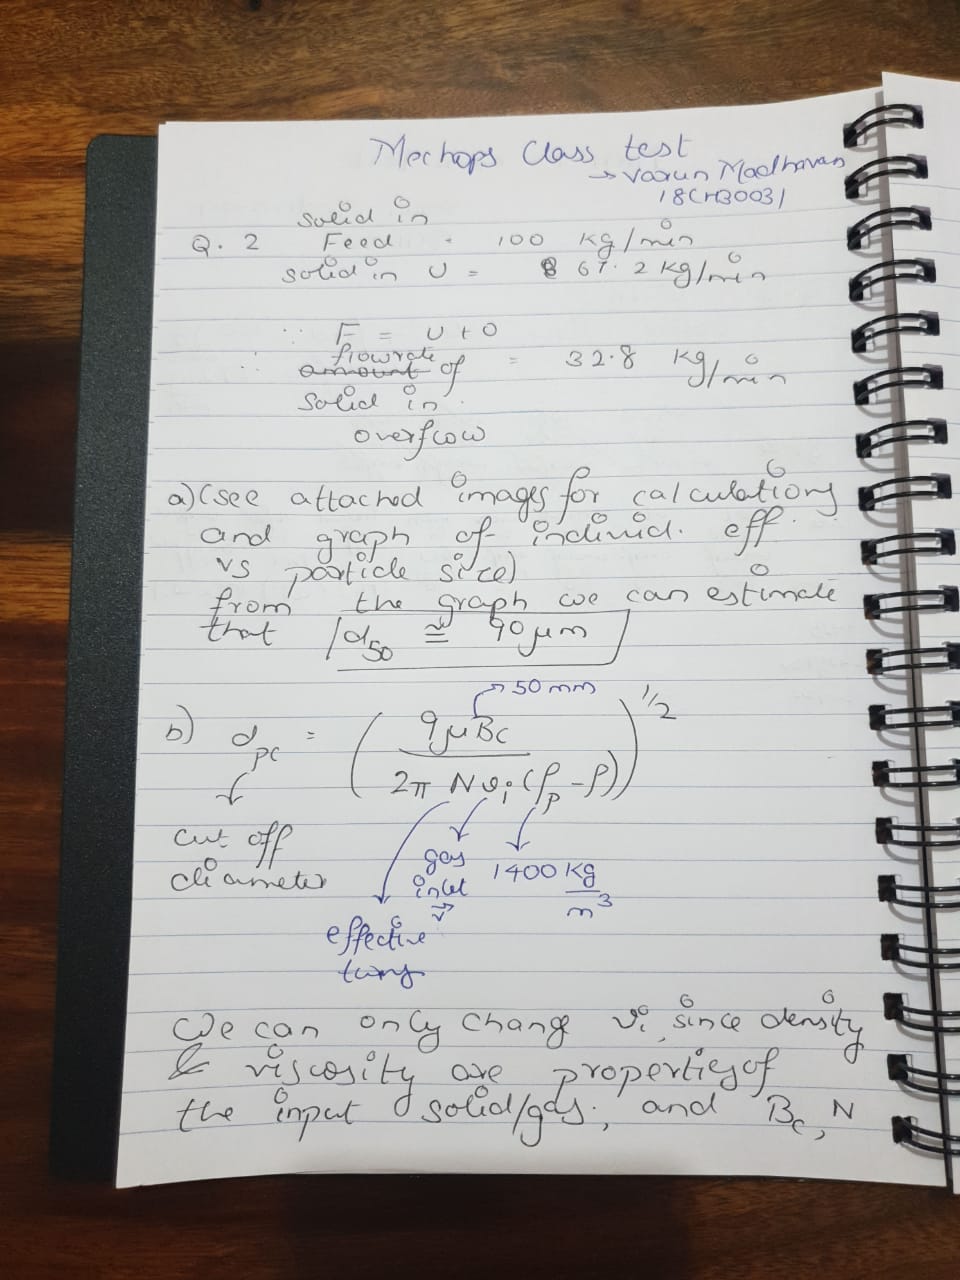 Mechops Class test
→ Varun Madhavan
18CH30031
solid in
Q. 2 Feed = 100 kg/min
solid in U = 67.2 kg/min
∵ F = U + O
flowrate
∴ amount of = 32.8 kg/min
solid in
overflow
a) (see attached images for calculations
and graph of individ. eff.
vs particle size)
from the graph we can estimate
that d50 ≅ 90 μm
→ 50 mm
b) dpc = ( 9μBc / 2π N vi (ρp - ρ) )^1/2
cut off
diameter
gas
inlet
v→
1400 kg/m3
effective
turns
We can only change vi, since density
& viscosity are properties of
the input solid/gas, and Bc, N